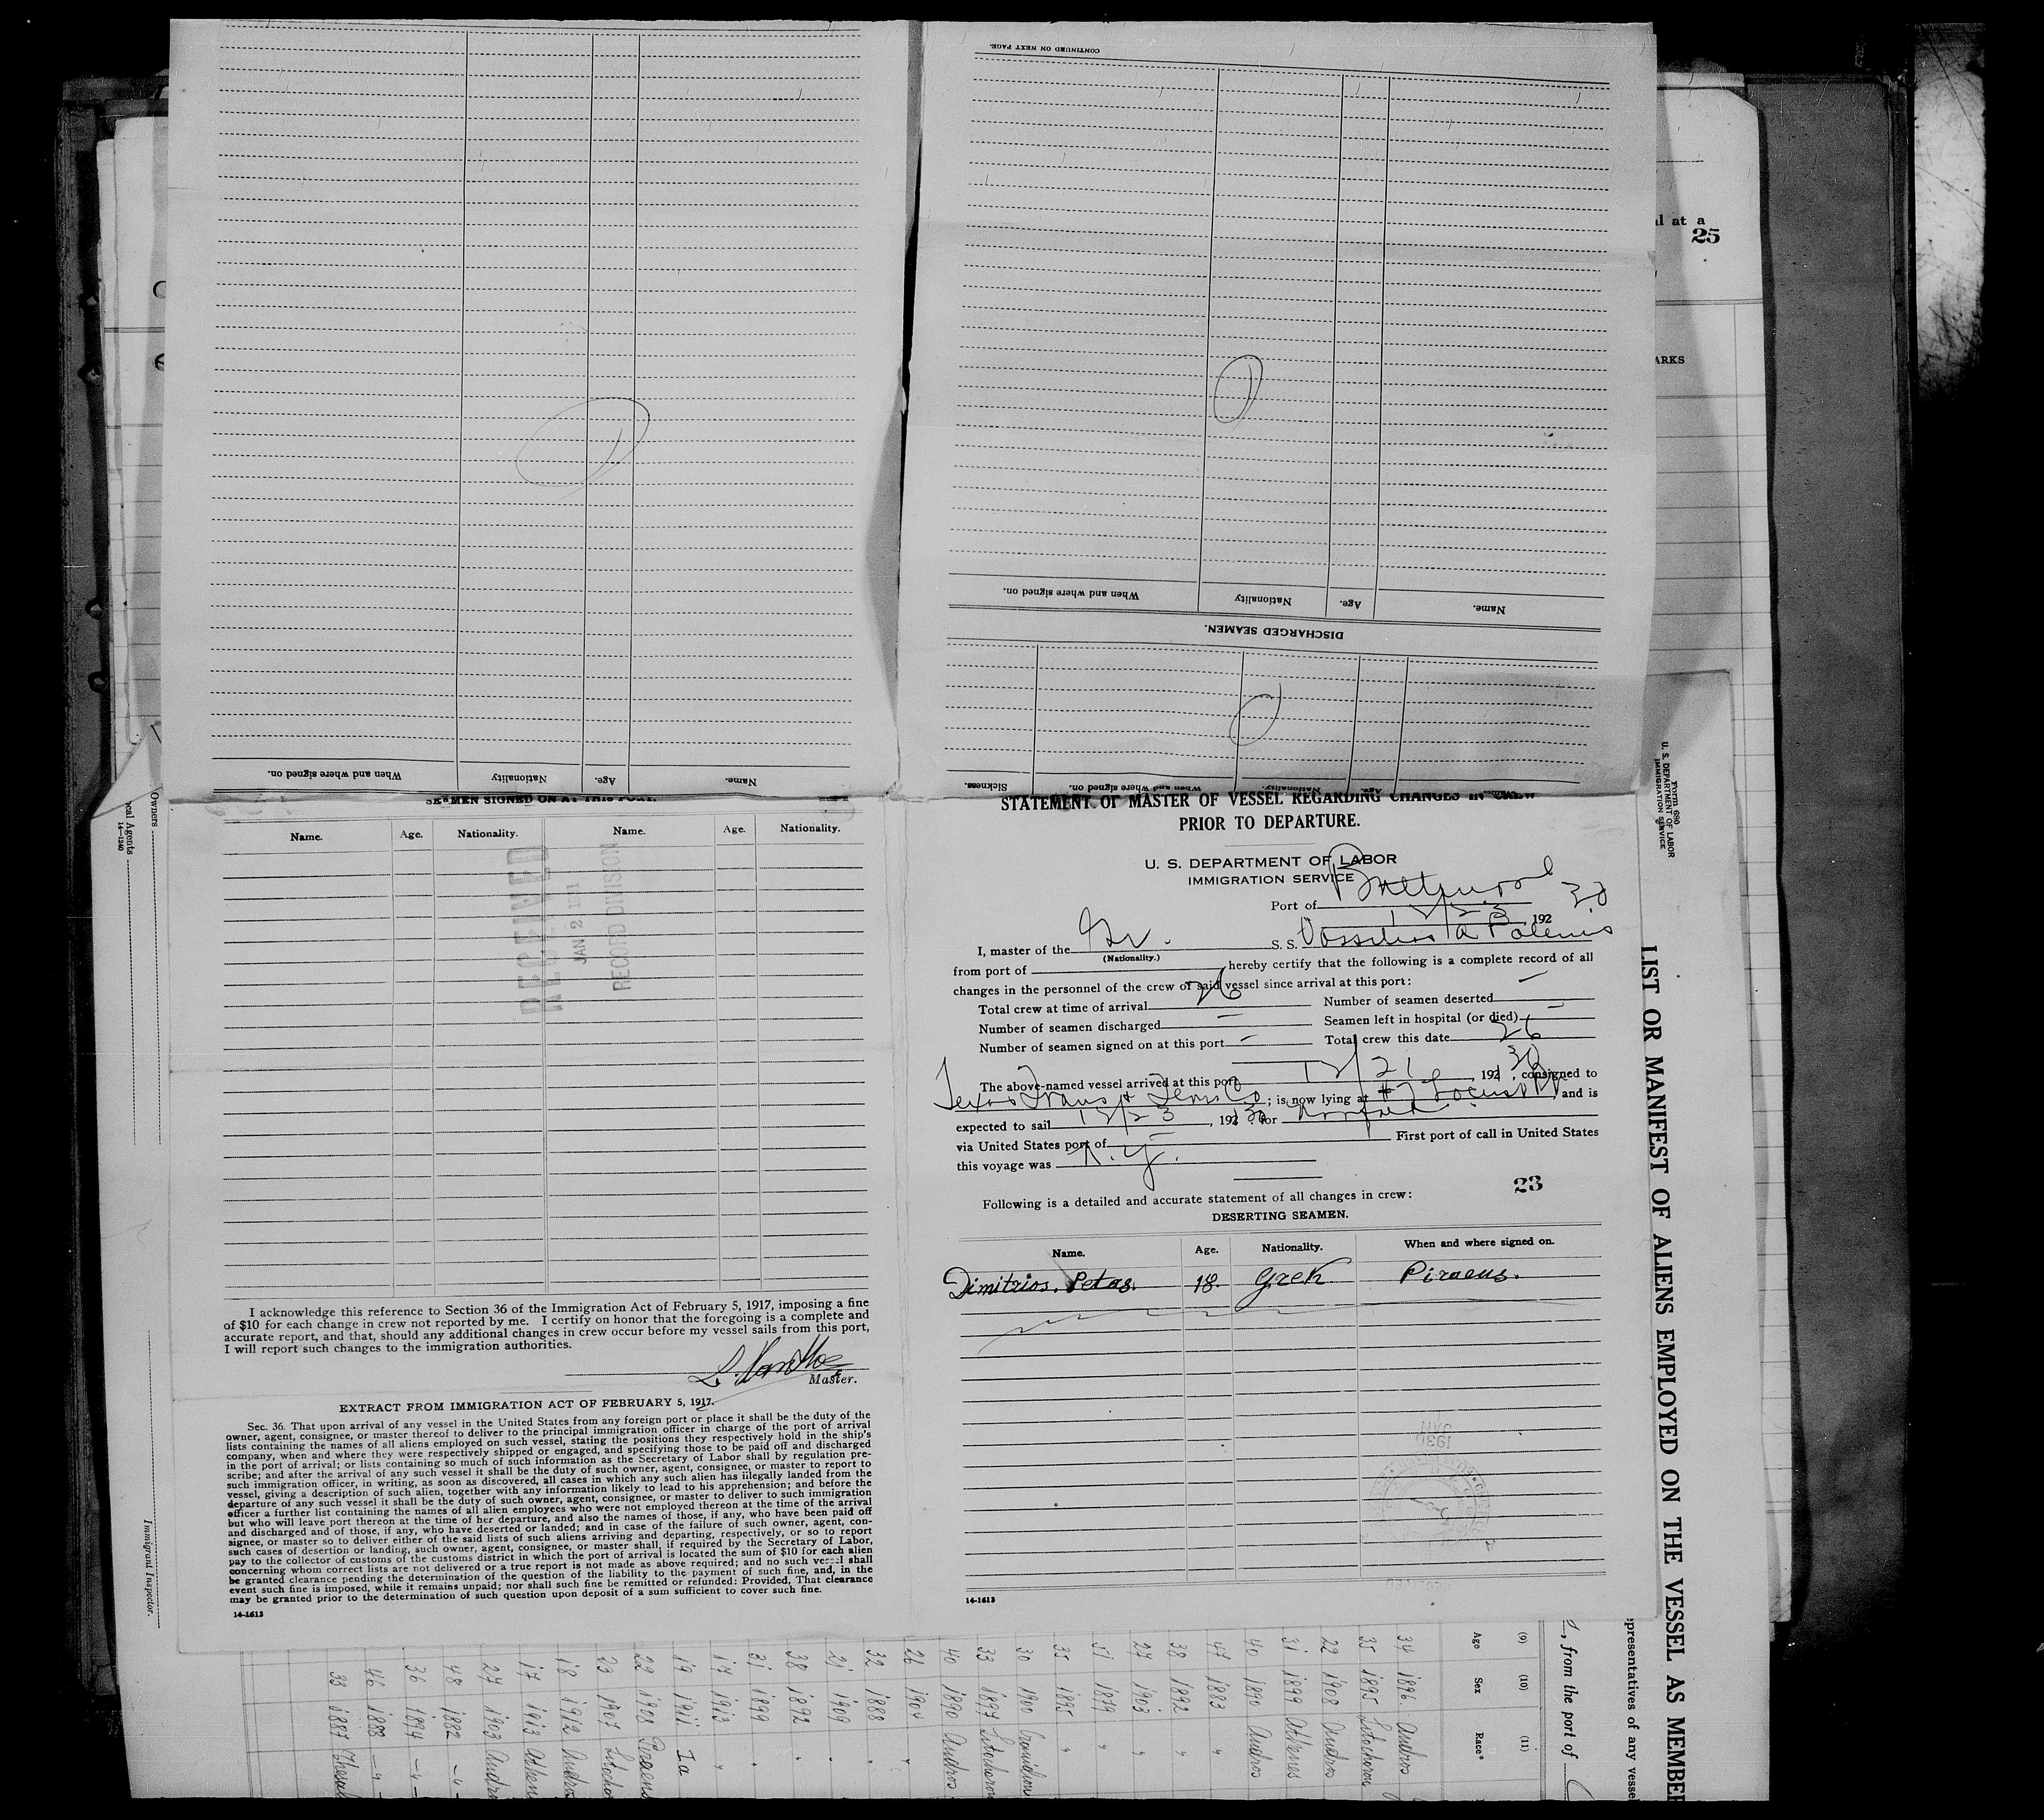 CONTINUED ON NEXT PAGE.
When and where signed on.
Nationality
Age.
Name.
DISCHARGED SEAMEN.
Sickness.
When and where signed on.
Nationality.
Age.
Name.
When and where signed on.
Nationality
Age.
Name.
al at a
25
ARKS
Form 680
U. S. DEPARTMENT OF LABOR
IMMIGRATION SERVICE
Owners
cal Agents
14—1240
Immigrant Inspector.
SEAMEN SIGNED ON AT THIS PORT.
Name. Age. Nationality. Name. Age. Nationality.
RECEIVED
JAN 2 1931
RECORD DIVISION
I acknowledge this reference to Section 36 of the Immigration Act of February 5, 1917, imposing a fine
of $10 for each change in crew not reported by me. I certify on honor that the foregoing is a complete and
accurate report, and that, should any additional changes in crew occur before my vessel sails from this port,
I will report such changes to the immigration authorities.
Master.
EXTRACT FROM IMMIGRATION ACT OF FEBRUARY 5, 1917.
Sec. 36. That upon arrival of any vessel in the United States from any foreign port or place it shall be the duty of the
owner, agent, consignee, or master thereof to deliver to the principal immigration officer in charge of the port of arrival
lists containing the names of all aliens employed on such vessel, stating the positions they respectively hold in the ship's
company, when and where they were respectively shipped or engaged, and specifying those to be paid off and discharged
in the port of arrival; or lists containing so much of such information as the Secretary of Labor shall by regulation pre-
scribe; and after the arrival of any such vessel it shall be the duty of such owner, agent, consignee, or master to report to
such immigration officer, in writing, as soon as discovered, all cases in which any such alien has illegally landed from the
vessel, giving a description of such alien, together with any information likely to lead to his apprehension; and before the
departure of any such vessel it shall be the duty of such owner, agent, consignee, or master to deliver to such immigration
officer a further list containing the names of all alien employees who were not employed thereon at the time of the arrival
but who will leave port thereon at the time of her departure, and also the names of those, if any, who have been paid off
and discharged and of those, if any, who have deserted or landed; and in case of the failure of such owner, agent, con-
signee, or master so to deliver either of the said lists of such aliens arriving and departing, respectively, or so to report
such cases of desertion or landing, such owner, agent, consignee, or master shall, if required by the Secretary of Labor,
pay to the collector of customs of the customs district in which the port of arrival is located the sum of $10 for each alien
concerning whom correct lists are not delivered or a true report is not made as above required; and no such vessel shall
be granted clearance pending the determination of the question of the liability to the payment of such fine, and, in the
event such fine is imposed, while it remains unpaid; nor shall such fine be remitted or refunded: Provided, That clearance
may be granted prior to the determination of such question upon deposit of a sum sufficient to cover such fine.
14-1613
STATEMENT OF MASTER OF VESSEL REGARDING CHANGES IN CREW
PRIOR TO DEPARTURE.
U. S. DEPARTMENT OF LABOR
IMMIGRATION SERVICE
Port of
12/23, 192 30
I, master of the Gr. S. S. Vassilios A Polemis
(Nationality.)
from port of hereby certify that the following is a complete record of all
changes in the personnel of the crew of said vessel since arrival at this port:
Total crew at time of arrival 26 Number of seamen deserted —
Number of seamen discharged — Seamen left in hospital (or died) —
Number of seamen signed on at this port — Total crew this date 26
The above-named vessel arrived at this port 12/21, 192 30, consigned to
Texas Trans & Term Co; is now lying at #7 Locust Pt and is
expected to sail 12/23, 192 30 for Norfolk
via United States port of — First port of call in United States
this voyage was N. Y.
23
Following is a detailed and accurate statement of all changes in crew:
DESERTING SEAMEN.
Name. Age. Nationality. When and where signed on.
Dimitrios. Petas. 18. Grek Piraeus.
1930
14-1613
LIST OR MANIFEST OF ALIENS EMPLOYED ON THE VESSEL AS MEMBER
epresentatives of any vessel
, from the port of
(9) (10) (11)
Age Sex Race*
34 1896. Andros
35 1895 Litochoron
22 1908 Andros
31 1899 Athenes
40 1890 Andros
47 1883 "
38 1892 "
27 1903 "
51 1879 "
35 1895 "
30 1900
33 1897 Litochoron
40 1890 Andros
26 1904 "
32 1888 "
21 1909 "
38 1892 "
31 1899 "
17 1913 "
19 1911 Ia
22 1908 Piraeus
23 1907 Litocho
18 1912 Andro
17 1913 Athen
27 1903 Andr
48 1882 -"-
36 1894 -"-
46 1888 -"-
33 1887 Thesal